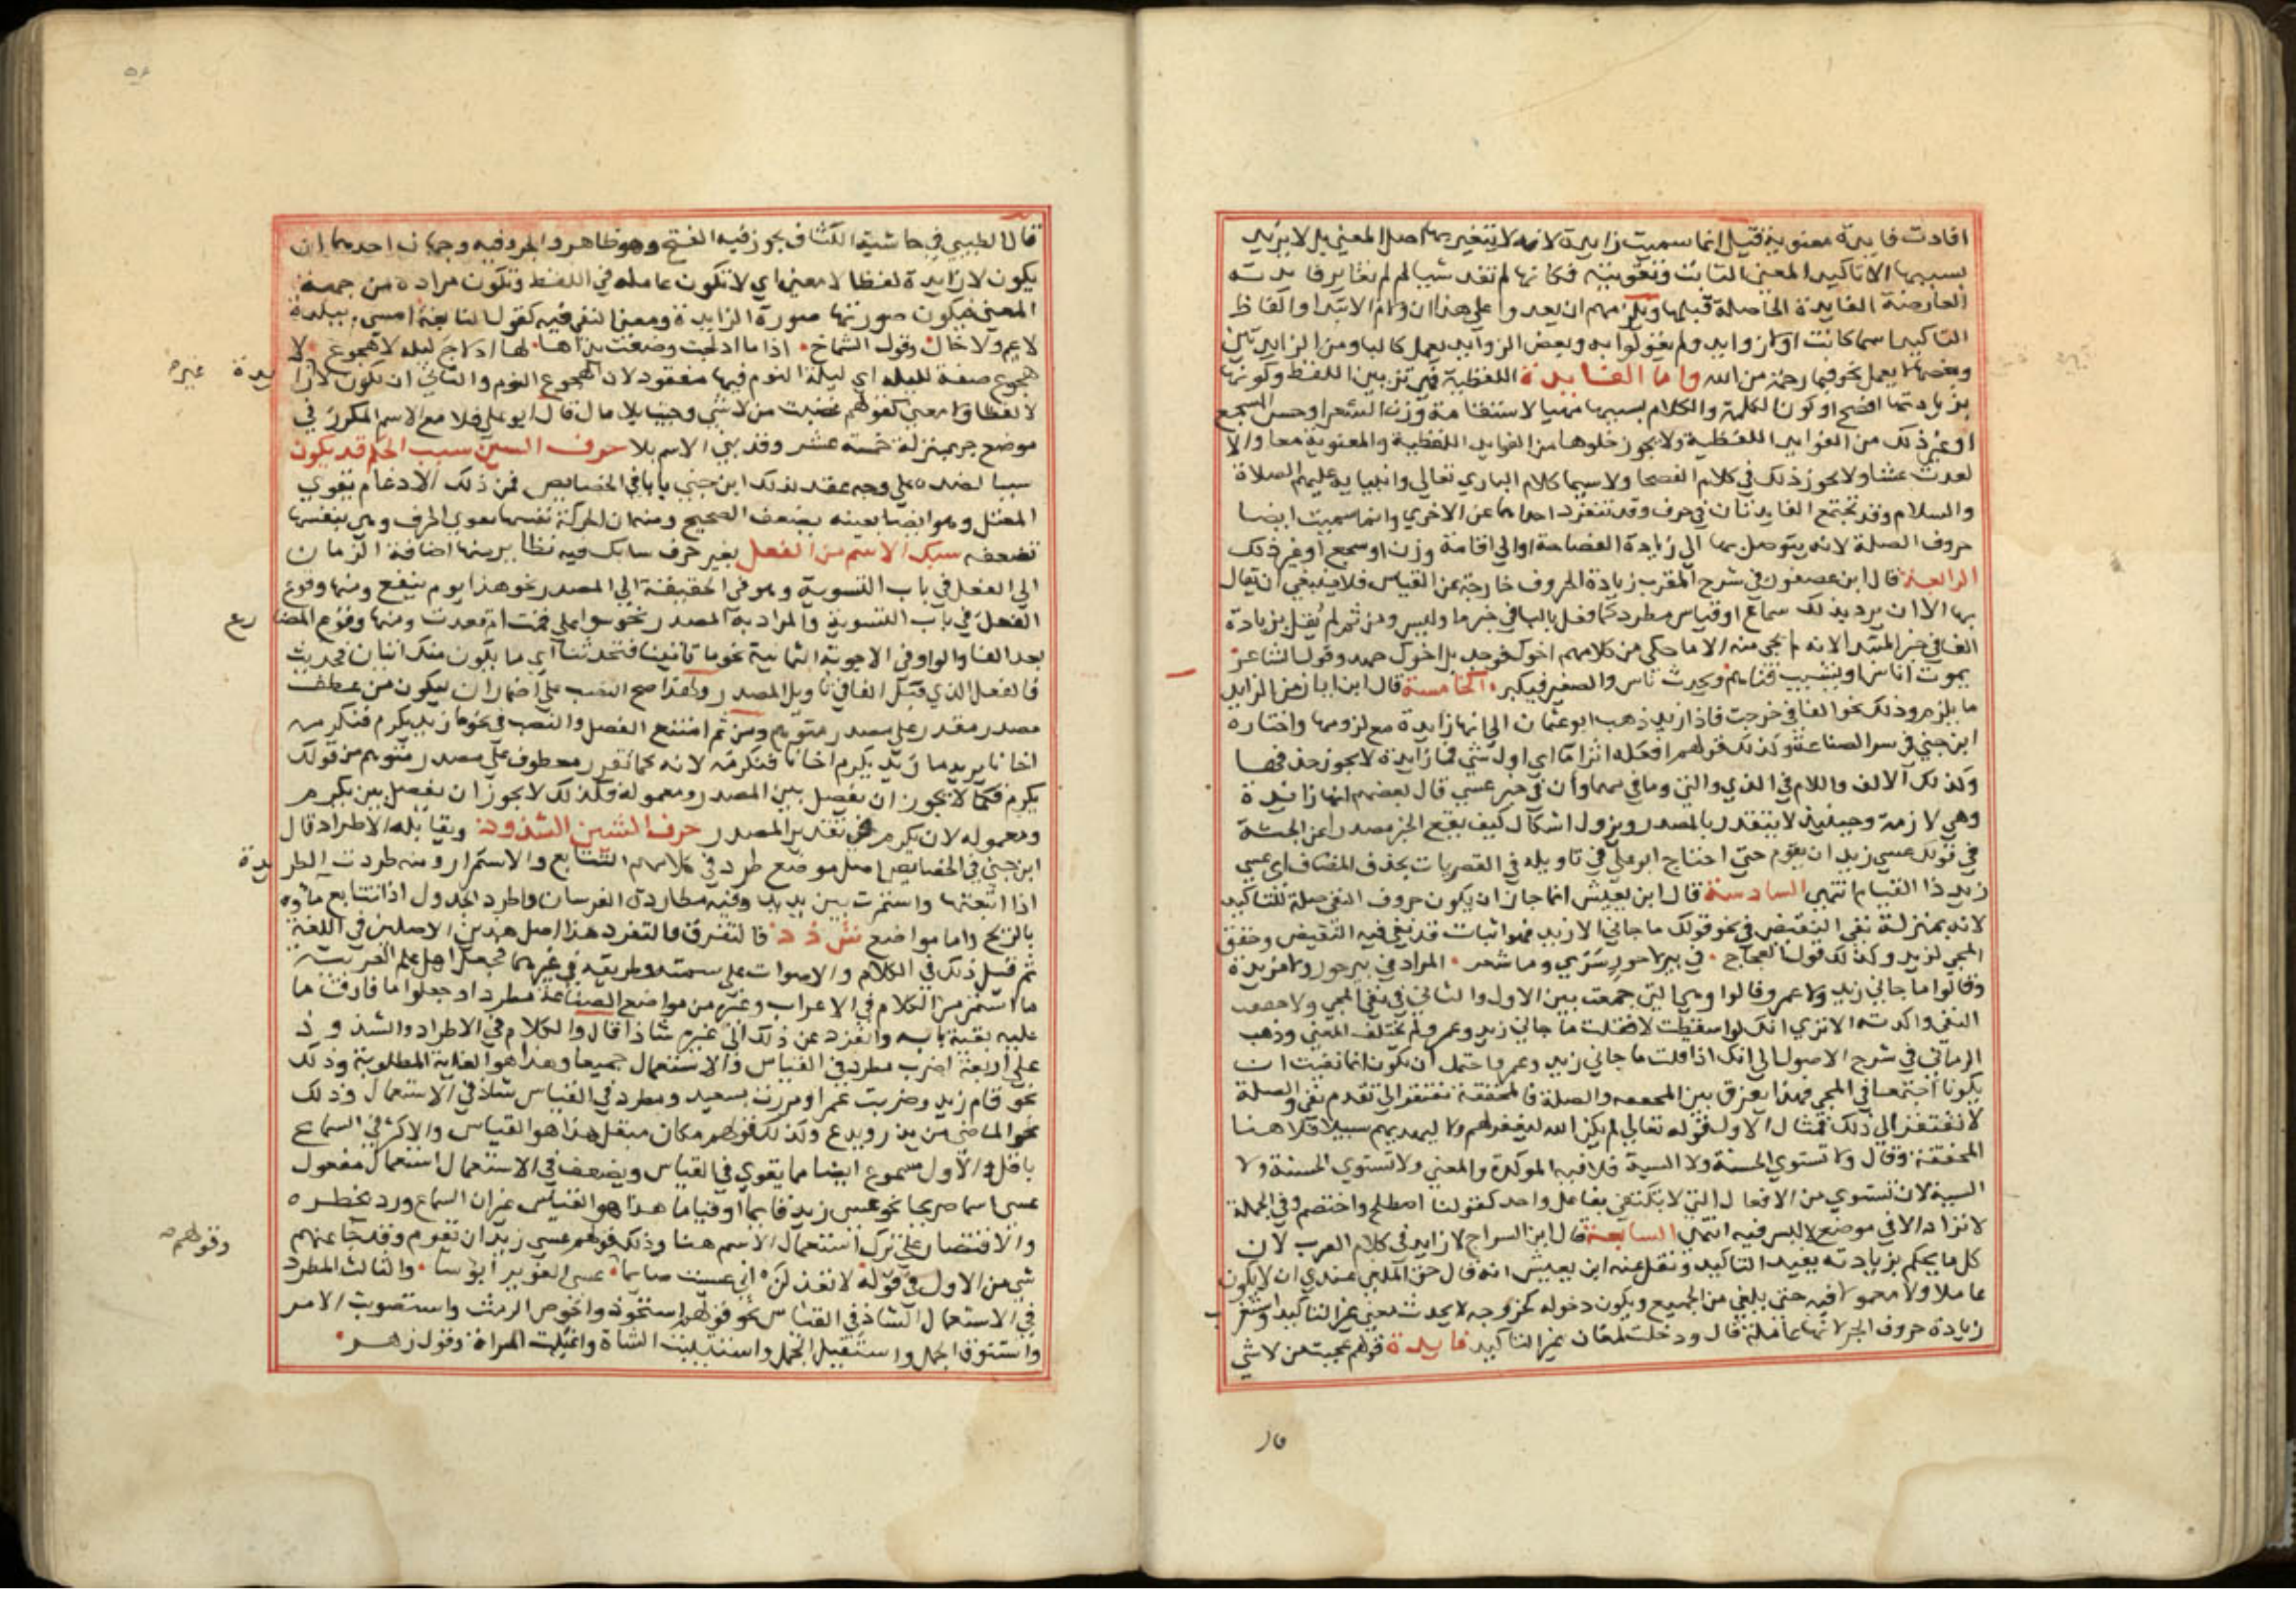 افادت فايدة معنوية قيل انما سميت زايدة لانه لا يتغير بها اصل المعني بل لا يزيد
بسببها الا تاكيد المعني الثابت وتقويته فكانها لم تفد شيا لم لم تغاير فايدته
العارضة الفايدة الحاصلة قبلها ويلزمهم ان يعدوا علي هذا ان ولام الابتدا والفاظ
التاكيد اسما كانت اولا زوايد ولم يقولوا به وبعض الزوايد يعمل كالبا ومن الزايدتين
وبعضها لا يعمل نحو فبما رحمة من الله واما الفايدة اللفظية فهي تزيين اللفظ وكونها
بزيادتها افصح او كون الكلمة والكلام بسببها مهيا لاستقامة وزن الشعر او حسن السجع
او غير ذلك من الفوايد اللفظية ولا يجوز خلوها من الفوايد اللفظية والمعنوية معا والا
لعدت عبثا ولا يجوز ذلك في كلام الفصحا ولا سيما كلام الباري تعالي وانبيايه عليهم الصلاة
والسلام وقد تجتمع الفايدتان في حرف وقد تنفرد احداهما عن الاخري وانما سميت ايضا
حروف الصلة لانه يتوصل بها الي زيادة الفصاحة او الي اقامة وزن او سجع او غير ذلك
الرابعة قال ابن عصفور في شرح المقرب زيادة الحروف خارجة عن القياس فلا ينبغي ان يقال
بها الا ان يرد بذلك سماع او قياس مطرد كما فعل بالبا في خبر ما وليس ومن ثم لم يقل بزيادة
الفا في خبر المبتدا لانه لم يجي منه الا ما حكي من كلامهم اخوك فوجد بل اخوك جهد وقول الشاعر
يموت اناس او يشيب فتاهم ويحدث ناس والصغير فيكبر الخامسة قال ابن اياز من الزايد
ما يلزم وذلك نحو الفا في خرجت فاذا زيد ذهب ابو عثمان الي انها زايدة مع لزومها واختاره
ابن جني في سر الصناعة وكذلك قولهم افعله اثرا ما اي اول شي فما زايدة لا يجوز حذفها
وكذلك الالف واللام في الذي والتي وما في مهما وان في خبر عسي قال بعضهم انها زايدة
وهي لازمة وحينيذ لا يتقدر بالمصدر ويزول اشكال كيف يقع الخبر مصدرا عن الجثة
في قولك عسي زيد ان يقوم حتي احتاج ابو علي في تاويله في القصريات بحذف المضاف اي عسي
زيد ذا القيام انتهي السادسة قال ابن يعيش انما جاز ان يكون حروف النفي صلة للتاكيد
لانه بمنزلة نفي النقيض في نحو قولك ما جاني الا زيد فهو اثبات قد نفي فيه النقيض وحقق
المجي لزيد وكذلك قول العجاج في بير لا حور سري وما شعر المراد في بير حور ولا مزيدة
وقالوا ما جاني زيد ولا عمرو قالوا وهي التي جمعت بين الاول والثاني في نفي المجي ولا حققت
النفي واكدته الا تري انك لو اسقطت لا فقلت ما جاني زيد وعمرو لم يختلف المعني وذهب
الرماني في شرح الاصول الي انك اذا قلت ما جاني زيد وعمرو احتمل ان يكون انما نفيت ان
يكونا اجتمعا في المجي فهذا يفرق بين المحققه والصلة فالمحققة تفتقر الي تقدم نفي والصلة
لا تفتقر الي ذلك فمثال الاول قوله تعالي لم يكن الله ليغفر لهم ولا ليهديهم سبيلا فلا هنا
المحققة وقال ولا تستوي الحسنة ولا السية فلا فيه الموكدة والمعني ولا تستوي الحسنة ولا
السية لان تستوي من الافعال التي لا تكتفي بفاعل واحد كقولنا اصطلح واختصم وفي الجملة
لا تزاد الا في موضع لا لبس فيه انتهي السابعة قال ابن السراج لا زايد في كلام العرب لان
كل ما يحكم بزيادته يفيد التاكيد ونقل عنه ابن يعيش انه قال حق الملغي عندي ان لا يكون
عاملا ولا معمولا فيه حتي يلغي من الجميع ويكون دخوله كخروجه لا يحدث معني غير التاكيد واستغرب
زيادة حروف الجر لانها عاملة قال ودخلت لمعان غير التاكيد فايدة قولهم عجبت من لا شي
قال
قال الطيبي في حاشية الكشاف يجوز فيه الفتح وهو ظاهر والجر وفيه وجهان احدهما ان
يكون لا زايدة لفظا لا معني اي لا تكون عاملة في اللفظ وتكون مرادة من جهة
المعني فيكون صورتها صورة الزايدة ومعنا النفي فيه كقول النابغة امسي ببلدة
لا عم ولا خال وقول الشماخ اذا ما ادلجت وضعت يداها لها ادلاج ليله لا هجوع لا
هجوع صفة لليله اي ليلة النوم فيها مفقود لان الهجوع النوم والثاني ان تكون لا زايدة غير
لا لفظا ولا معني كقولهم غضبت من لا شي وجيت بلا مال قال ابو علي فلا مع الاسم المكرر في
موضع جر بمنزلة خمسة عشر وقد بني الاسم بلا حرف السين سبب الحكم قد يكون
سببا لضده علي وجه عقد لذلك ابن جني بابا في الخصايص فمن ذلك الادغام يقوي
المعتل وهو ايضا بعينه يضعف الصحيح ومنه ان الحركة نفسها تقوي الحرف وهي بنفسها
تضعفه سبك الاسم من الفعل بغير حرف سابك فيه نظاير منها اضافة الزمان
الي الفعل في باب التسوية وهو في الحقيقة الي المصدر نحو هذا يوم ينفع ومنها وقوع
الفعل في باب التسوية والمراد به المصدر نحو سوا علي قمت ام قعدت ومنها وقوع المضارع
بعد الفا والواو في الاجوبة الثمانية نحو ما تاتينا فتحدثنا اي ما يكون منك اتيان فحديث
فالفعل الذي قبل الفا في تاويل المصدر ولهذا صح النصب علي اضمار ان ليكون من عطف
مصدر مقدر علي مصدر متوهم ومن ثم امتنع الفصل والنصب في نحو ما زيد يكرم فنكرمه
اخانا يريد ما زيد يكرم اخانا فنكرمه لانه كما تقرر معطوف علي مصدر متوهم من قولك
يكرم فكما لا يجوز ان يفصل بين المصدر ومعموله فكذلك لا يجوز ان يفصل بين يكرم
ومعموله لان يكرم في تقدير المصدر حرف الشين الشذوذ ويقابله الاطراد قال
ابن جني في الخصايص اصل موضع طرد في كلامهم التتابع والاستمرار ومنه طردت الطريدة
اذا اتبعتها واستمرت بين يديك وفيه مطاردة الفرسان واطرد الجدول اذا تتابع ماوه
بالريح واما مواضع ش ذ ذ فالتفرق فالتفرد هذا اصل هذين الاصلين في اللغة
ثم قيل ذلك في الكلام والاصوات علي سمته وطريقه في غيرهما فجعل اهل علم العربية
ما استمر من الكلام في الاعراب وغيره من مواضع الصناعة مطردا وجعلوا ما فارق ما
عليه بقية بابه وانفرد عن ذلك الي غيره شاذا قال والكلام في الاطراد والشذوذ
علي اربعة اضرب مطرد في القياس والاستعمال جميعا وهذا هو الغاية المطلوبة وذلك
نحو قام زيد وضربت عمرا ومررت بسعيد ومطرد في القياس شاذ في الاستعمال وذلك
نحو الماضي من يذر ويدع وكذلك قولهم مكان مبقل هذا هو القياس والاكثر في السماع
باقل والاول مسموع ايضا مما يقوي في القياس ويضعف في الاستعمال استعمال مفعول
عسي اسما صريحا نحو عسي زيد قايما او قياما هذا هو القياس غير ان السماع ورد بحظره
والاقتصار علي ترك استعمال الاسم هنا وذلك قولهم عسي زيد ان يقوم وقد جا عنهم
شي من الاول في قوله لا تعذلن اني عسيت صايما وقولهم عسي الغوير ابوسا والثالث المطرد
في الاستعمال الشاذ في القياس نحو قولهم استحوذ واخوص الرمث واستصوبت الامر
واستنوق الجمل واستفيل الجمل واستتيست الشاة واغيلت المراة وقول زهير